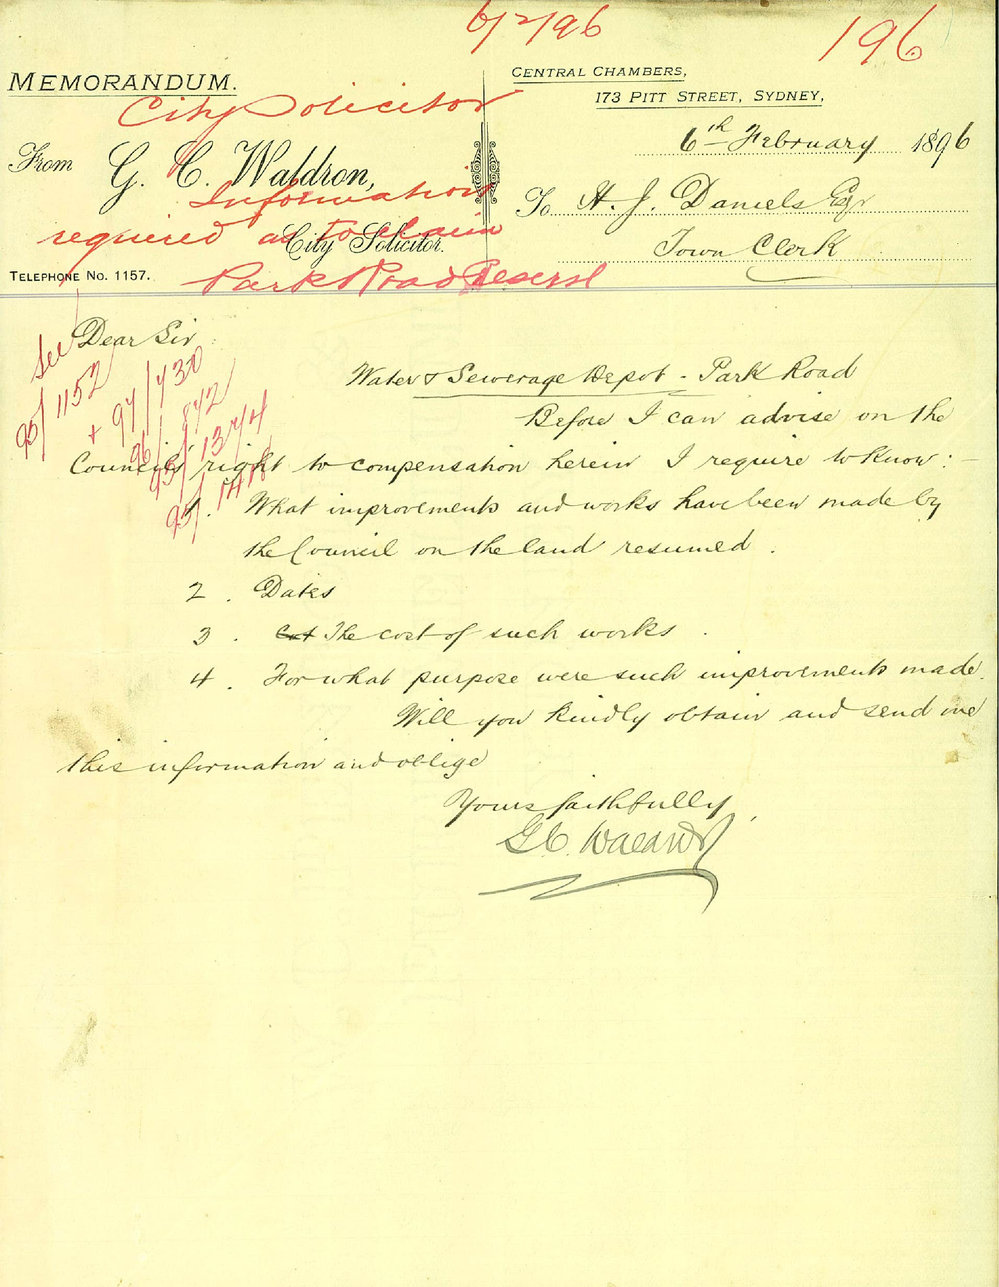 6/2/96
196
MEMORANDUM.
CENTRAL CHAMBERS,
173 PITT STREET, SYDNEY,
City Solicitor
6th February 1896
From G. C. Waldron,
Information
To H. J. Daniels Esqr
required as to claim
City Solicitor.
Town Clerk
TELEPHONE No. 1157.
Park Road Reserve
Dear Sir
See
95/1152
+ 94/430
96/842
95/1374
95/
Water & Sewerage Depot - Park Road
Before I can advise on the
Councils right to compensation herein I require to know:-
1. What improvements and works have been made by
the Council on the land resumed.
2. Dates
3. Cost The cost of such works.
4. For what purpose were such improvements made.
Will you kindly obtain and send me
this information and oblige
Yours faithfully,
G C. Waldron